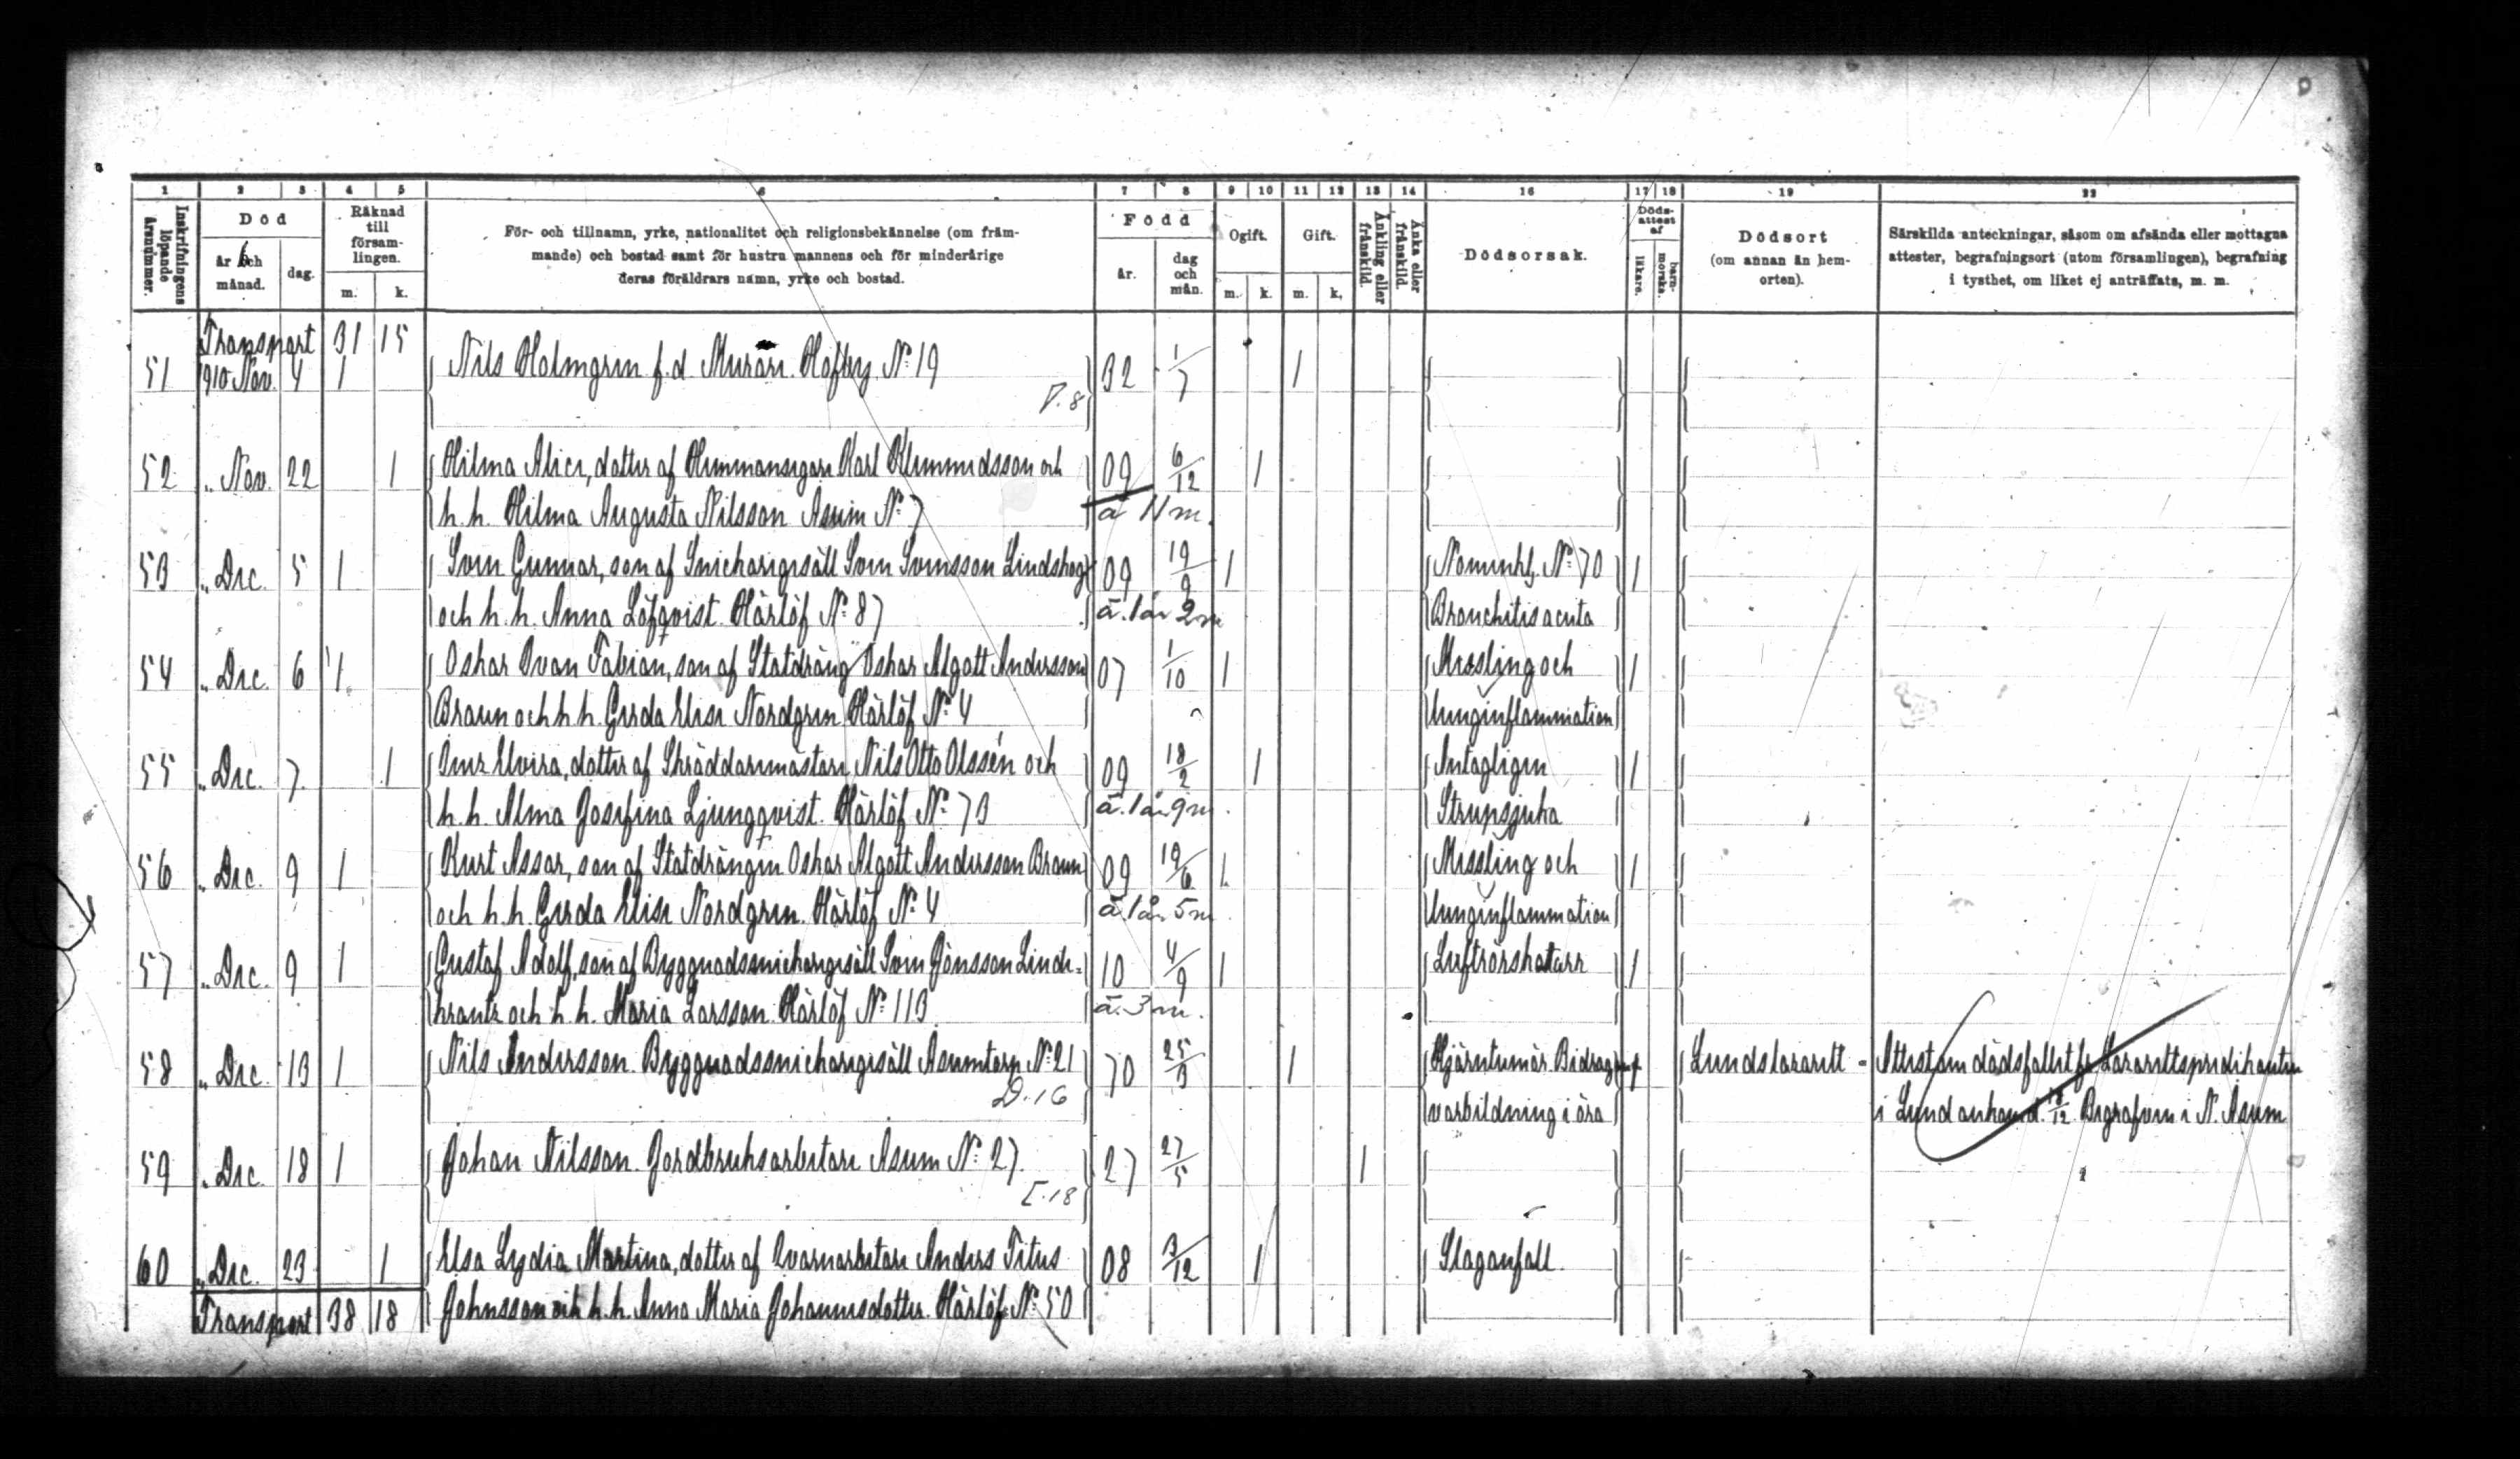 1 2 3 4 5 6 7 8 9 10 11 12 13 14 16 17 18 19 22
Inskrifningens löpande årsnummer.
Död
år och månad.
dag.
Räknad till försam-lingen.
m. k.
För- och tillnamn, yrke, nationalitet och religionsbekännelse (om främ-
mande) och bostad samt för hustru mannens och för minderårige
deras föräldrars namn, yrke och bostad.
Född
år.
dag och mån.
Ogift.
m. k.
Gift.
m. k.
Änkling eller frånskild.
Änka eller frånskild.
Dödsorsak.
Döds-attest af
läkare.
barn-morska.
Dödsort
(om annan än hem-
orten).
Särskilda anteckningar, såsom om afsända eller mottagna
attester, begrafningsort (utom församlingen), begrafning
i tysthet, om liket ej anträffats, m. m.
Transport 31 15
51 1910 Nov. 4 1 Nils Holmgren f. d. Murare. Hofby. Nº 19 32 1/7 1
P. 8
52 " Nov. 22 1 Hilma Alice, dotter af Hemmansegare Karl Klemmedsson och 09 6/12 1
h. h. Hilma Augusta Nilsson Asum Nº 7 ä 11 m.
53 " Dec. 5 1 Sven Gunnar, son af Snickaregesäll Sven Svensson Lindskog 09 19/9 1 Nomenkl. Nº 70 1
och h. h. Anna Löfqvist. Härlöf Nº 87 ä. 1 år 2 m Bronchitis acuta
54 " Dec. 6 1 Oskar Ivan Fabian, son af Statdräng Oskar Algott Andersson 07 1/10 1 Messling och 1
Braun och h. h. Gerda Elise Nordgren Härlöf Nº 4 lunginflammation
55 " Dec. 7 1 Inez Elvira, dotter af Skräddaremästare Nils Otto Olssén och 09 18/2 1 Antagligen 1
h. h. Alma Josefina Ljungqvist. Härlöf Nº 73 ä. 1 år 9 m. Strupsjuka
56 " Dec. 9 1 Kurt Assar, son af Statdrängen Oskar Algott Andersson Braun 09 19/6 1 Messling och 1
och h. h. Gerda Elise Nordgren. Härlöf Nº 4 ä. 1 år 5 m. lunginflammation
57 " Dec. 9 1 Gustaf Adolf, son af Byggnadssnickaregesäll Sven Jönsson Linde- 10 4/9 1 Luftrörskatarr 1
krantz och h. h. Maria Larsson. Härlöf Nº 113 ä. 3 m.
58 " Dec. 13 1 Nils Andersson. Byggnadssnickaregesäll Asumtorp Nº 21 70 25/3 1 Hjärntumör. Bidrag Lunds lazarett - Attest om dödsfallet fr. Lazarettspredikanten
D. 16 varbildning i öra i Lund ankom d. /12. Begrafven i N. Asum
59 " Dec. 18 1 Johan Nilsson. Jordbruksarbetare Asum Nº 27. 27 27/5 1
E. 18
60 " Dec. 23 1 Elsa Lydia Martina, dotter af Qvarnarbetare Anders Titus 08 3/12 1 Slaganfall.
Transport 38 18 Johnsson och h. h. Anna Maria Johannesdotter. Härlöf Nº 50